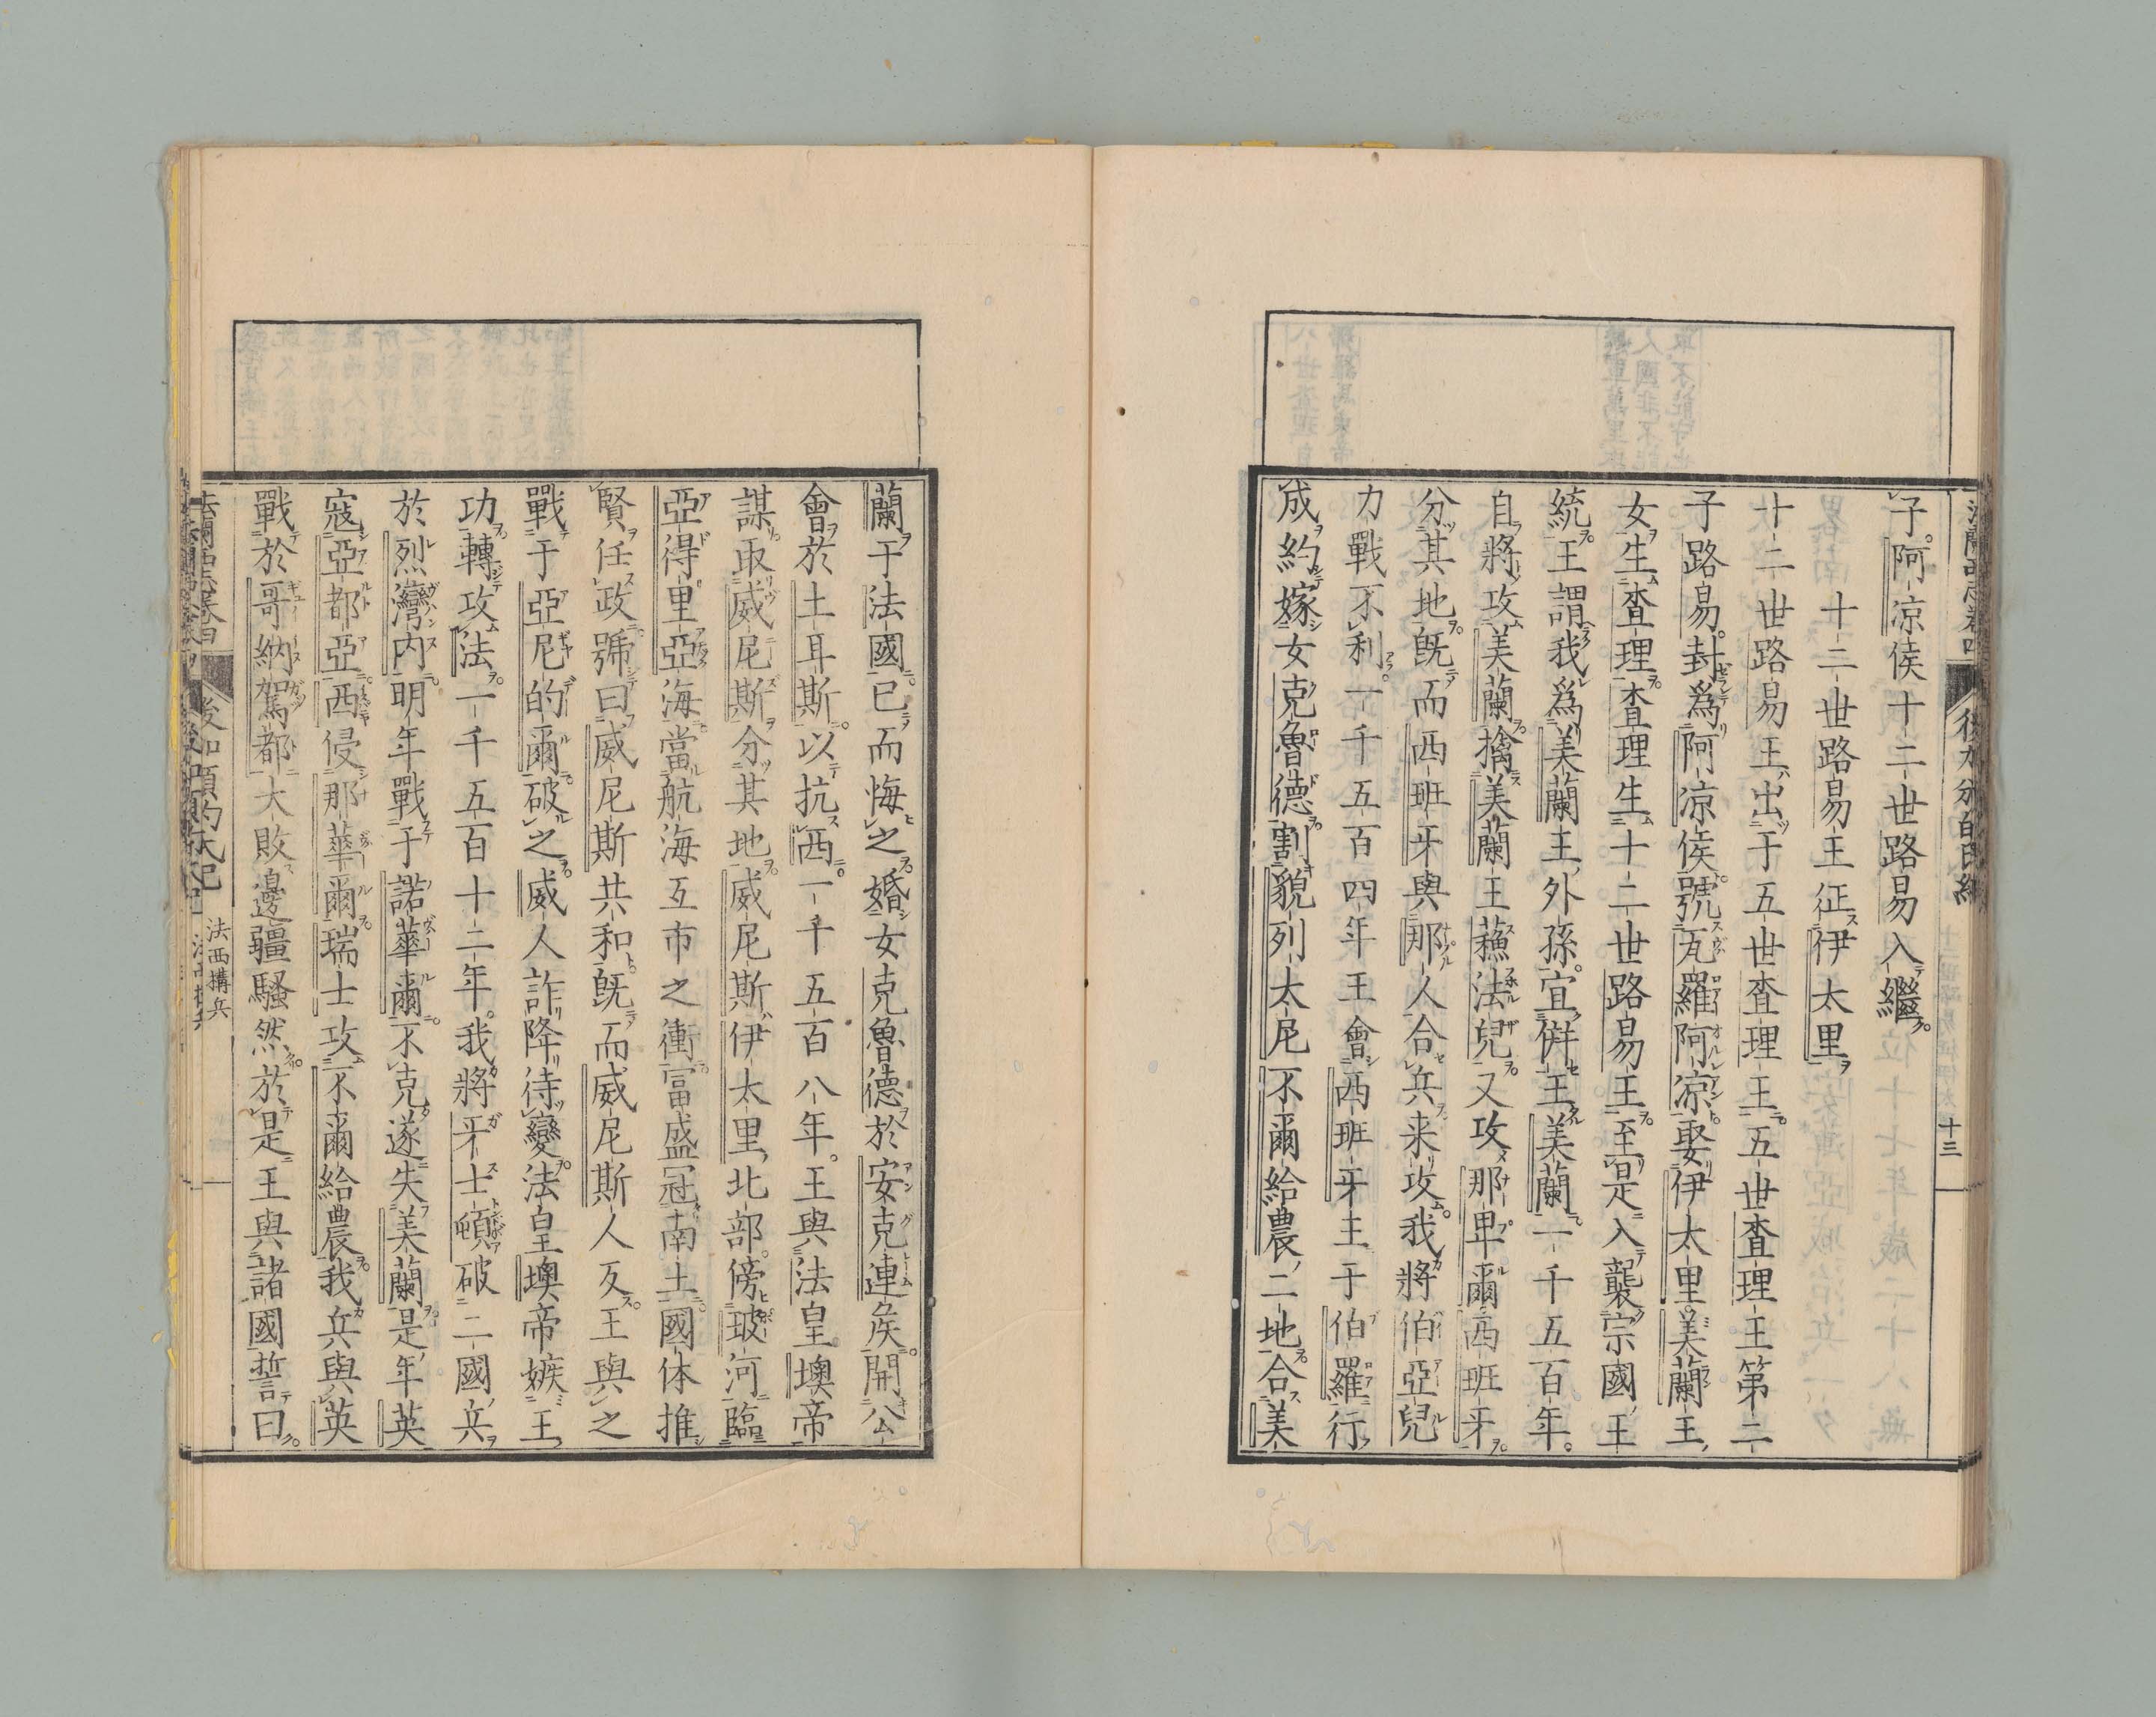 子阿凉侯十二世路易入繼
十二世路易王征伊太里
十二世路易王出于五世査理王五世査理王第二
子路易封爲阿凉侯號瓦羅阿凉娶伊太里美蘭王
女生査理査理生十二世路易王至是入襲宗國王
統王謂我爲美蘭王外孫宜併王美蘭一千五百年
自將攻美蘭擒美蘭王蘓法兒又攻那卑爾西班牙
分其地既而西班牙與那人合兵来攻我將伯亞兒
力戰不利一千五百四年王會西班牙王于伯羅行
成約嫁女克魯德割貌列太尼不爾給農二地合美
十三
蘭于法國已而悔之婚女克魯德於安克連侯開公
會於土耳斯以抗西一千五百八年王與法皇墺帝
謀取威尼斯分其地威尼斯伊太里北部傍玻河臨
亞得里亞海當航海互市之衝富盛冠南土國体推
賢任政號曰威尼斯共和既而威尼斯人反王與之
戰于亞尼的爾破之威人詐降待變法皇墺帝嫉王
功轉攻法一千五百十二年我將牙士頓破二國兵
於烈灣内明年戰于諾華爾不克遂失美蘭是年英
寇亞都亞西侵那華爾瑞士攻不爾給農我兵與英
戰於哥納駕都大敗邊疆騒然於是王與諸國誓曰
法西搆兵